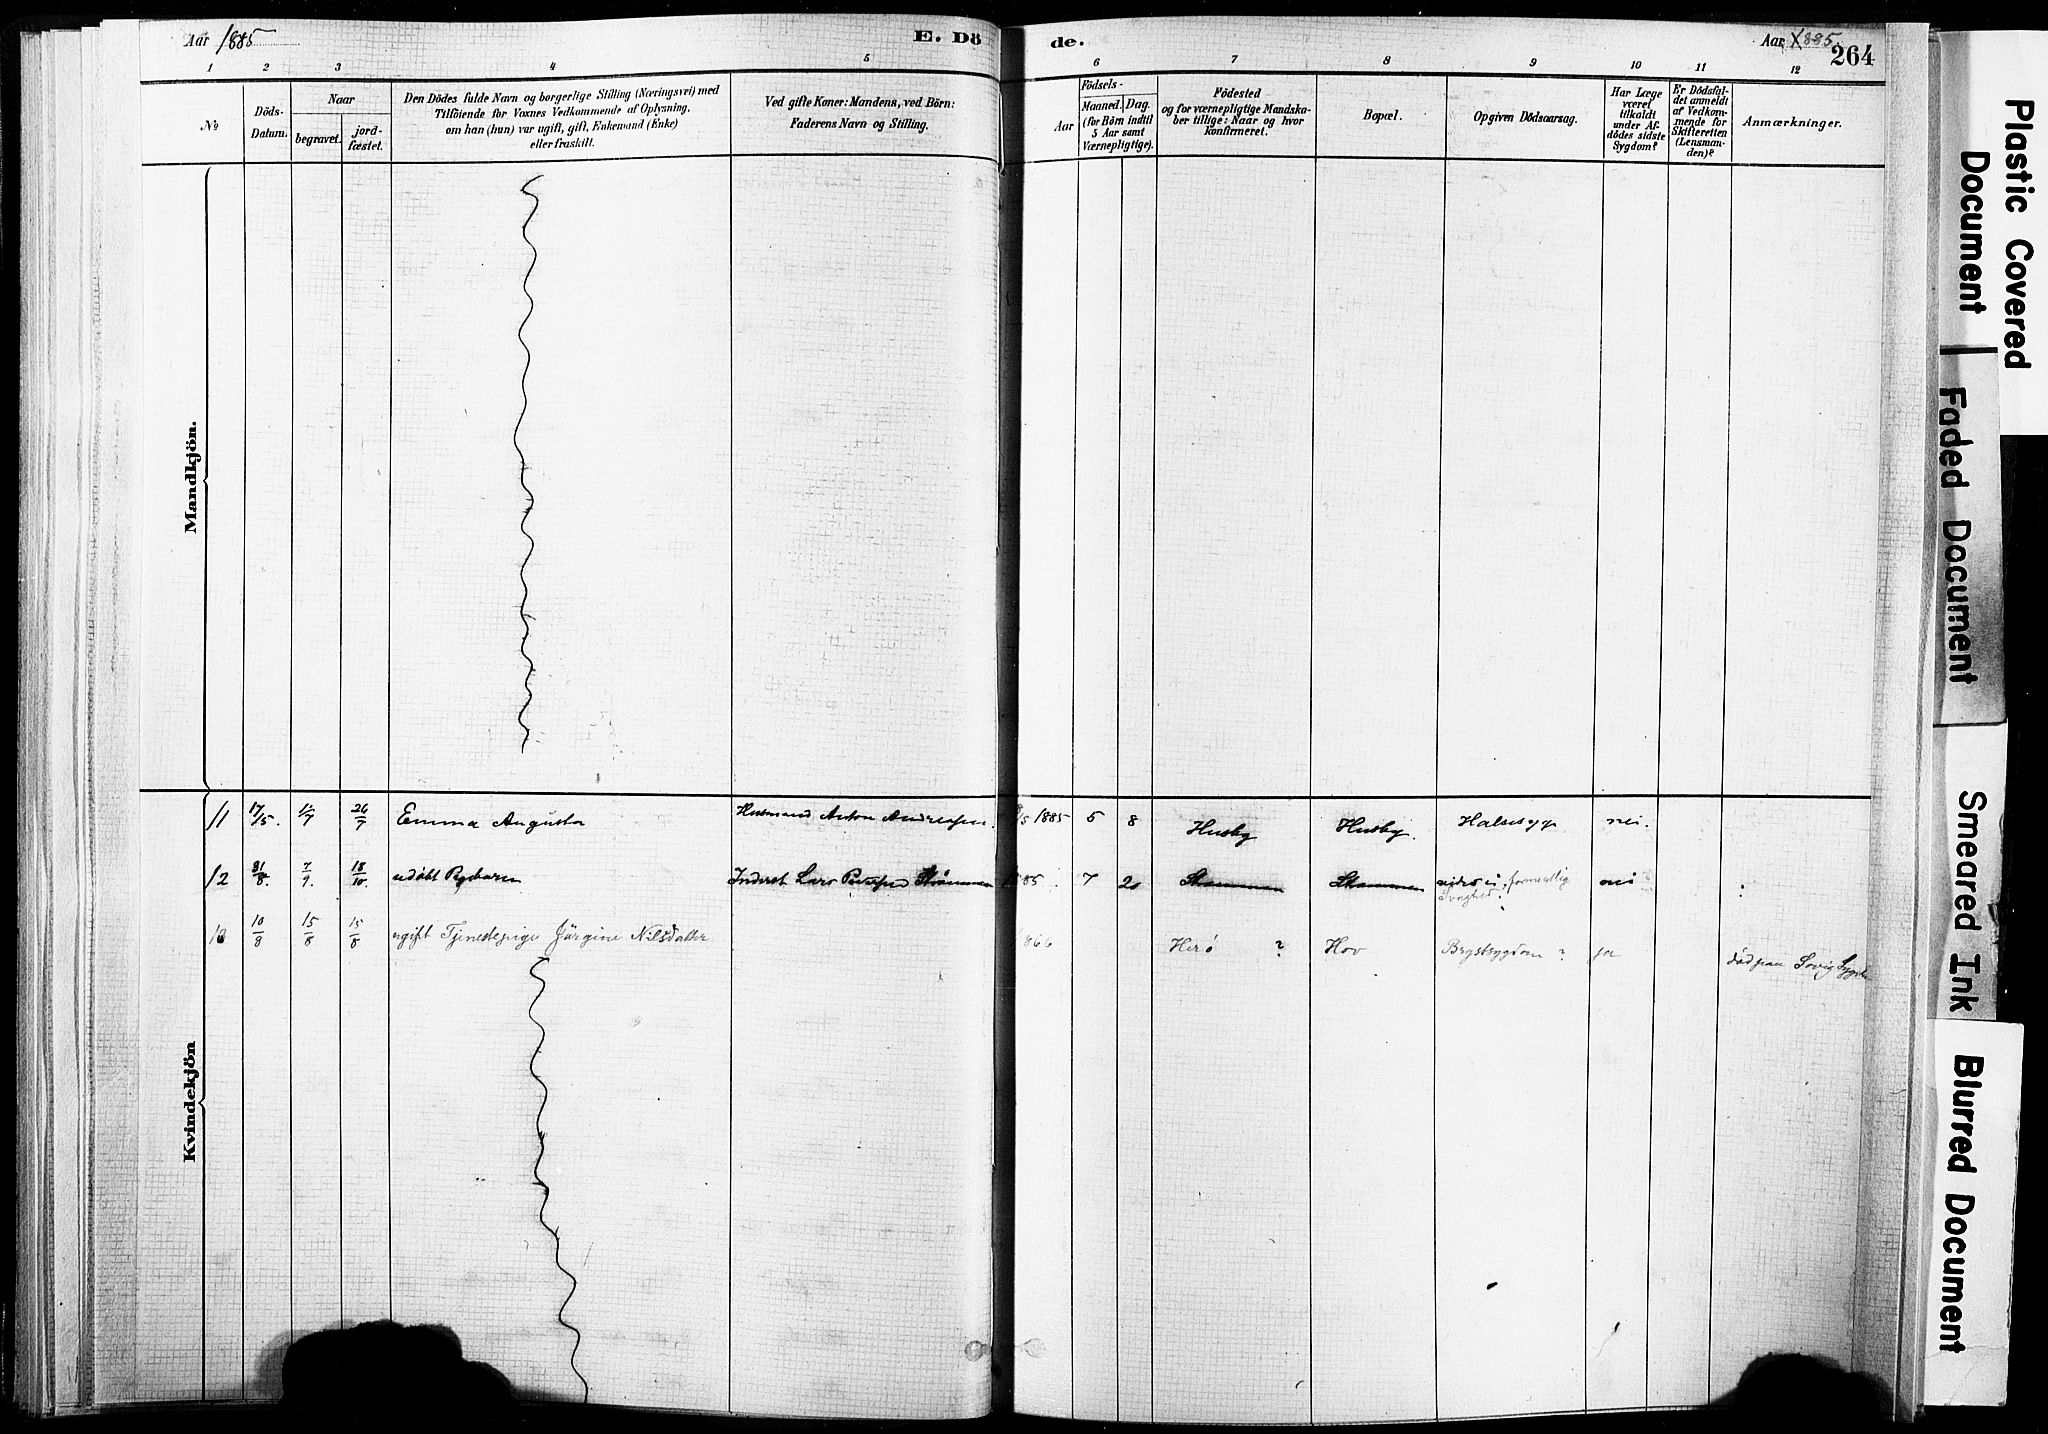 Aar 1885
E. Dö
de.
Aar 1885
264
1 2 3 4 5 6 7 8 9 10 11 12
№
Döds-Datum.
Naar
begravet.
jord-fæstet.
Den Dödes fulde Navn og borgerlige Stilling (Næringsvei) med
Tilföiende for Voxnes Vedkommende af Oplysning,
om han (hun) var ugift, gift, Enkemand (Enke)
eller fraskilt.
Ved gifte Koner: Mandens, ved Börn:
Faderens Navn og Stilling.
Födsels-
Aar
Maaned. Dag.
(for Börn indtil
5 Aar samt
Værnepligtige).
Födested
og for værnepligtige Mandska-
ber tillige: Naar og hvor
konfirmeret.
Bopæl.
Opgiven Dödsaarsag.
Har Læge
været
tilkaldt
under Af-
dödes sidste
Sygdom?
Er Dödsfal-
det anmeldt
af Vedkom-
mende for
Skifteretten
(Lensman-
den)?
Anmærkninger.
Mandkjön.
Kvindekjön
11 17/5. 26/7 Emma Augusta Husmand Anton Andreasen. 1885 5 8 Husby Husby. Halssyge nei.
12 31/8. 7/9. 18/10. udöbt Pigebarn Inderst Lars 85. 7 20 nei
13 10/8 15/8 15/8 ugift Tjenestepige Jörgine Nilsdatter 866 Herö ? Hov Brystsygdom ? ja
död paa
Plastic Covered
Document
Faded Document
Smeared Ink
Blurred Document